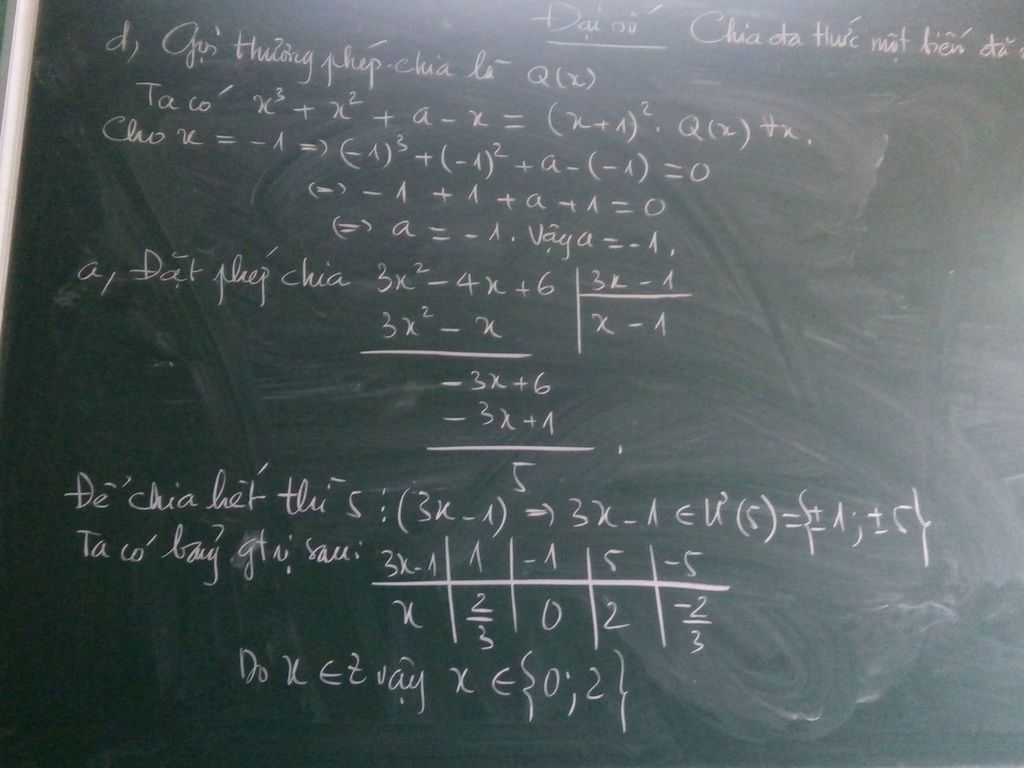 Đại số Chia đa thức một biến đã
d, Gọi thương phép chia là Q(x)
Ta có x³ + x² + a - x = (x+1)². Q(x) ∀x.
Cho x = -1 => (-1)³ + (-1)² + a - (-1) = 0
(=) - 1 + 1 + a + 1 = 0
(=) a = -1. Vậy a = -1.
a, Đặt phép chia 3x² - 4x + 6 | 3x - 1
3x² - x | x - 1
-3x + 6
-3x + 1
5
Để chia hết thì 5 ⋮ (3x - 1) => 3x - 1 ∈ Ư(5) = {±1; ±5}
Ta có bảng gtrị sau:
3x-1 | 1 | -1 | 5 | -5
x | 2/3 | 0 | 2 | -2/3
Do x ∈ Z vậy x ∈ {0; 2}